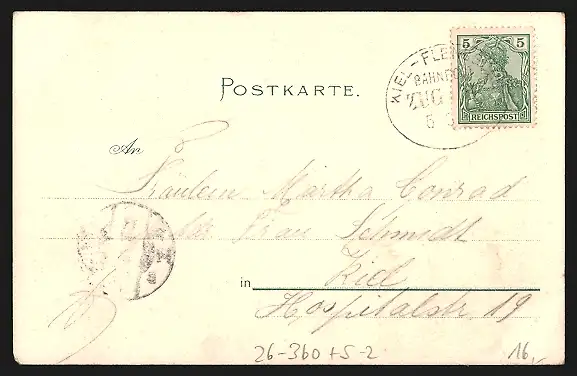 POSTKARTE.
KIEL-FLE
BAHNPO
ZUG
5 3
5 5
REICHSPOST
An
Fräulein Martha Conrad
Frau Schmidt
in Kiel
Hospitalstr 19
26-360+S-2
16,-